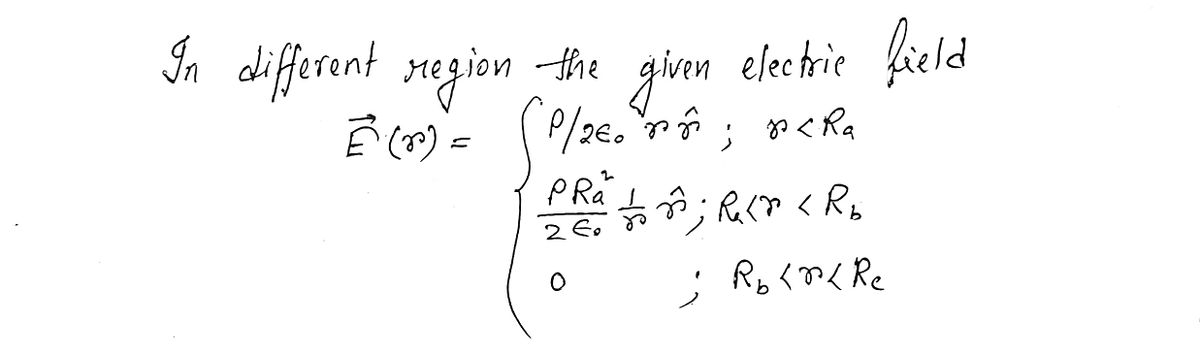 In different region the given electric field
E⃗ (r) = { ρ/2ϵ₀ r r̂ ; r < Ra
ρ Ra² / 2 ϵ₀ 1/r r̂ ; Ra < r < Rb
0 ; Rb < r < Rc